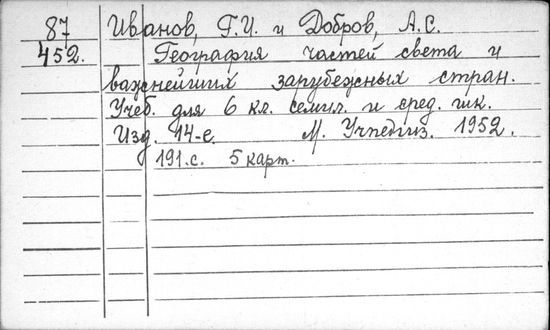 87 Иванов, Г.И. и Добров, А.С.
452. География частей света и
важнейших зарубежных стран.
Учеб. для 6 кл. семил. и сред. шк.
Изд. 14-е. М. Учпедгиз. 1952.
191.с. 5 карт.